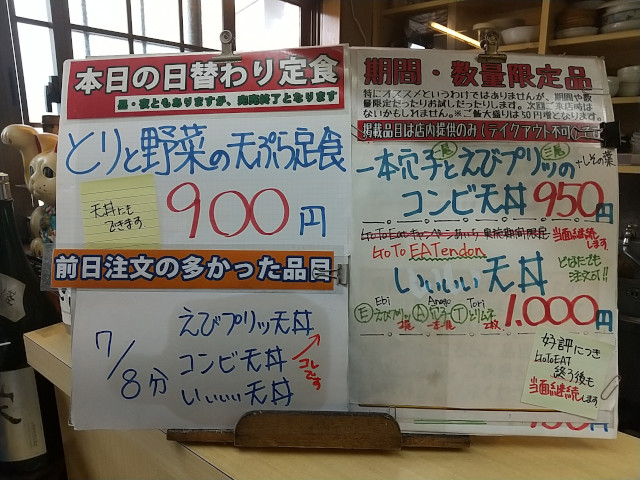 本日の日替わり定食
昼・夜ともありますが、完売終了となります
とりと野菜の天ぷら定食
天丼にも
できます
900円
前日注文の多かった品目
7/8分
えびプリッ天丼
コンビ天丼
いいいい天丼
コレ
です
期間・数量限定品
特にオススメというわけではありませんが、期間や数
量限定だったりお試しだったりします。次回ご来店時は
ないかもしれません。※ご飯大盛りは50円増となります。
掲載品目は店内提供のみ(テイクアウト不可)
一本穴子とえびプリッの
+しその葉
コンビ天丼 950円
GoToEatキャンペーンあいち 実施期間限定
当面継続
します
GoTo EATendon
いいいい天丼
どなたでも
注文可!!
Ebi
Anago
Tori
E えびプリッ
2尾
A 穴子
T とりムネ
2枚
1,000円
好評につき
GoToEAT
終了後も
当面継続します